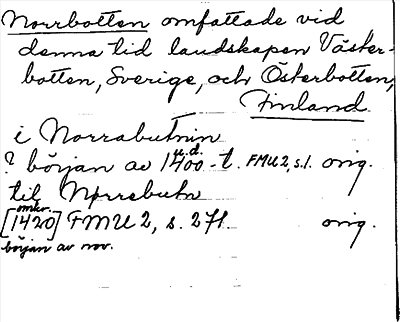 Norrbotten omfattade vid
denna tid landskapen Väster-
botten, Sverige, och Österbotten,
Finland
i Norrabutnin
u.d.
? början av 1400-t. FMU 2, s.1. orig.
til Norrebutn
omkr.
[1420] FMU 2, s. 271. orig.
början av nov.